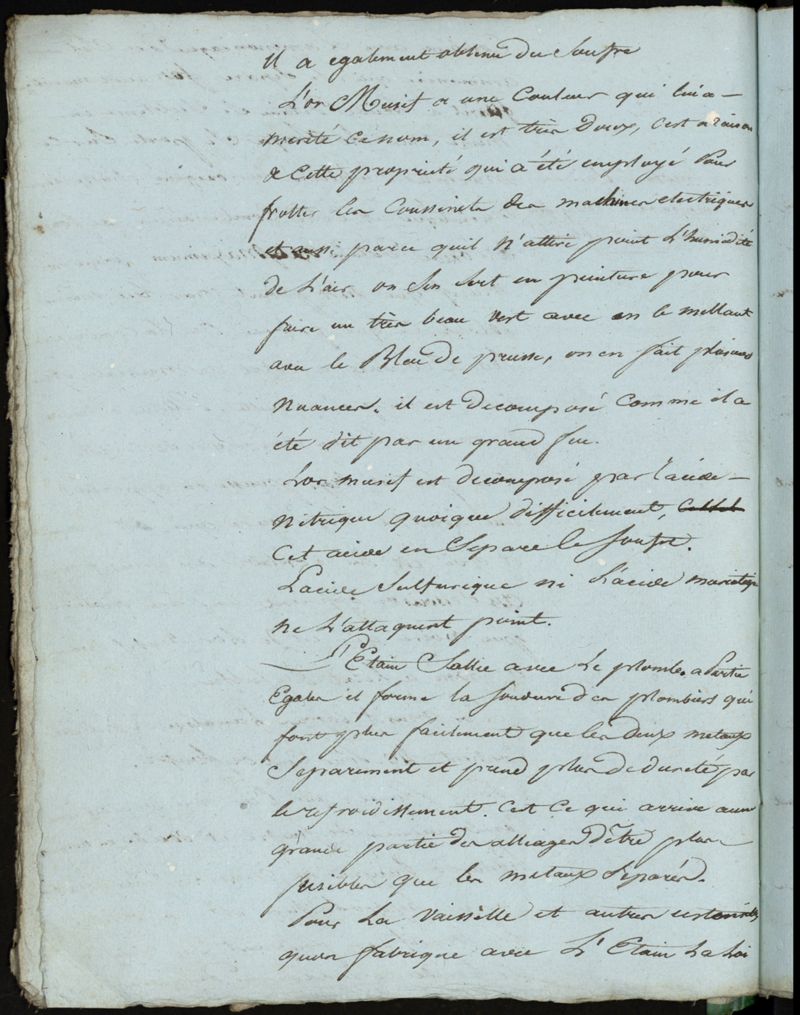 Il a egalement obtenu du Soufre
L'or Musif a une Couleur qui lui a
merité ce nom, il est très Doux, c'est a raison
de Cette proprieté qui a été employé Pour
frotter les Coussinets des machines electriques
et aussi parce quil N'attire point L'humidité
de L'air on s'en sert en peinture pour
faire un très beau vert avec en le mettant
avec le Bleu de prusse, on en fait plusieurs
Nuances. il est Decomposé Comme il a
été dit par un grand feu.
L'or musif est decomposé par l'acide
Nitrique quoique difficilement,
Cet acide en Separe le Soufre.
L'acide Sulfurique ni L'acide muriatique
ne L'attaquent point.
L'Etain S'allie avec Le plomb a Partie
Egales et forme la Soudure des plombiers qui
font plus facilement que les deux metaux
Separement et prend plus de dureté par
le refroidissement. Cet Ce qui arrive a une
grande partie des alliages D'être plus
fusibles que les metaux Séparés.
Pour La Vaisselle et autres ustensiles
qu'on fabrique avec L'Etain La Loi